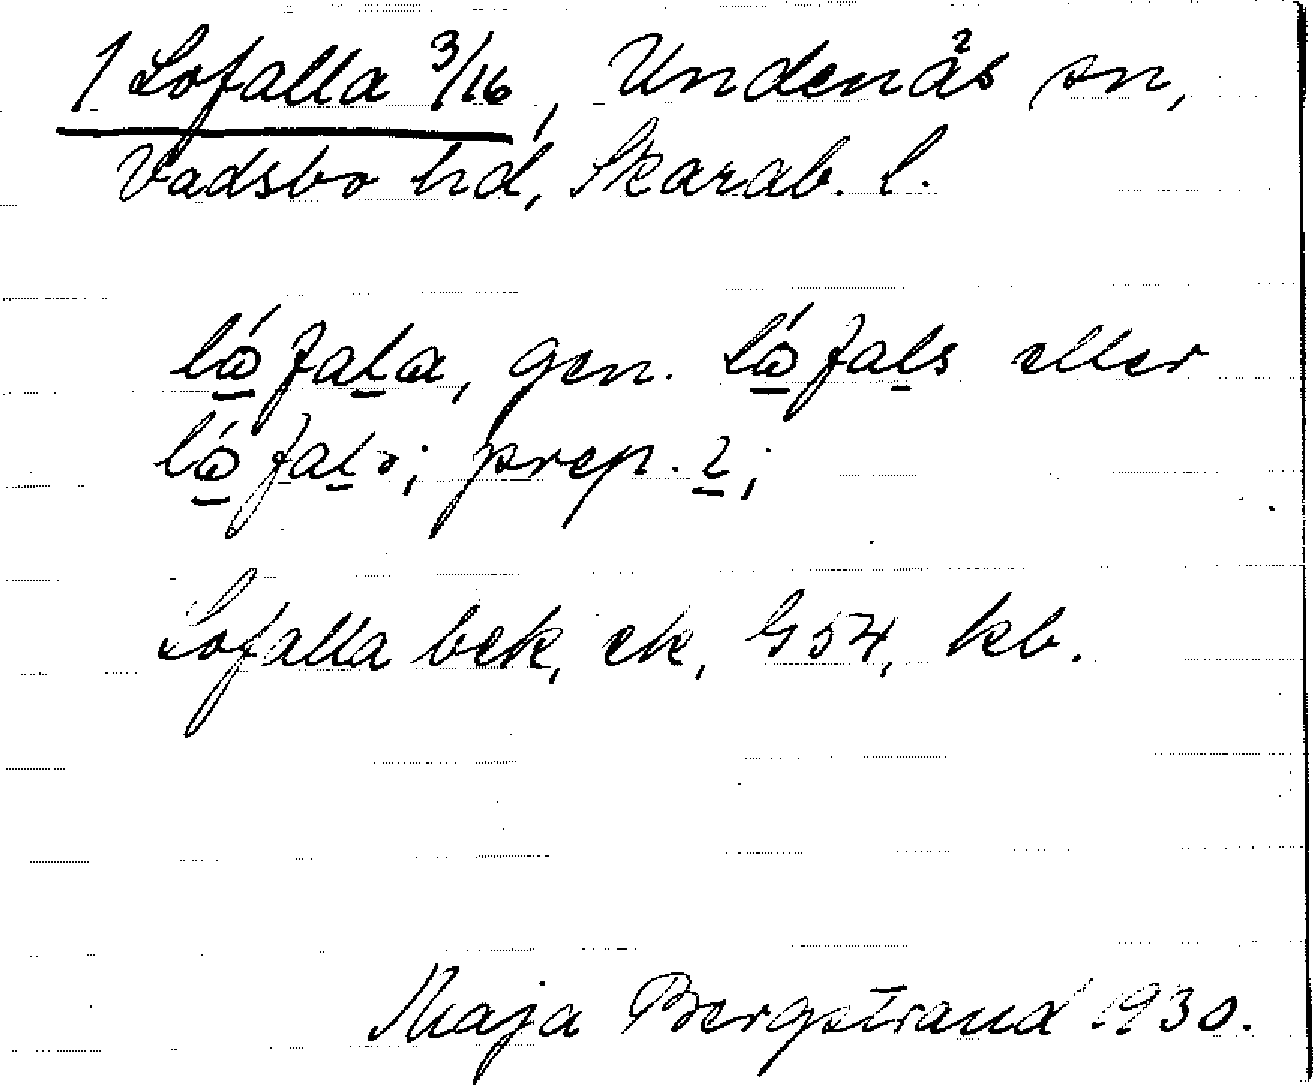 1 Lofalla 3/16, Undenäs sn,
Vadsbo hd, Skarab. l.
lófala, gen. lófals eller
prep. ;
Lofalla bek, ek, G54, kb.
Maja Bergstrand 1930.